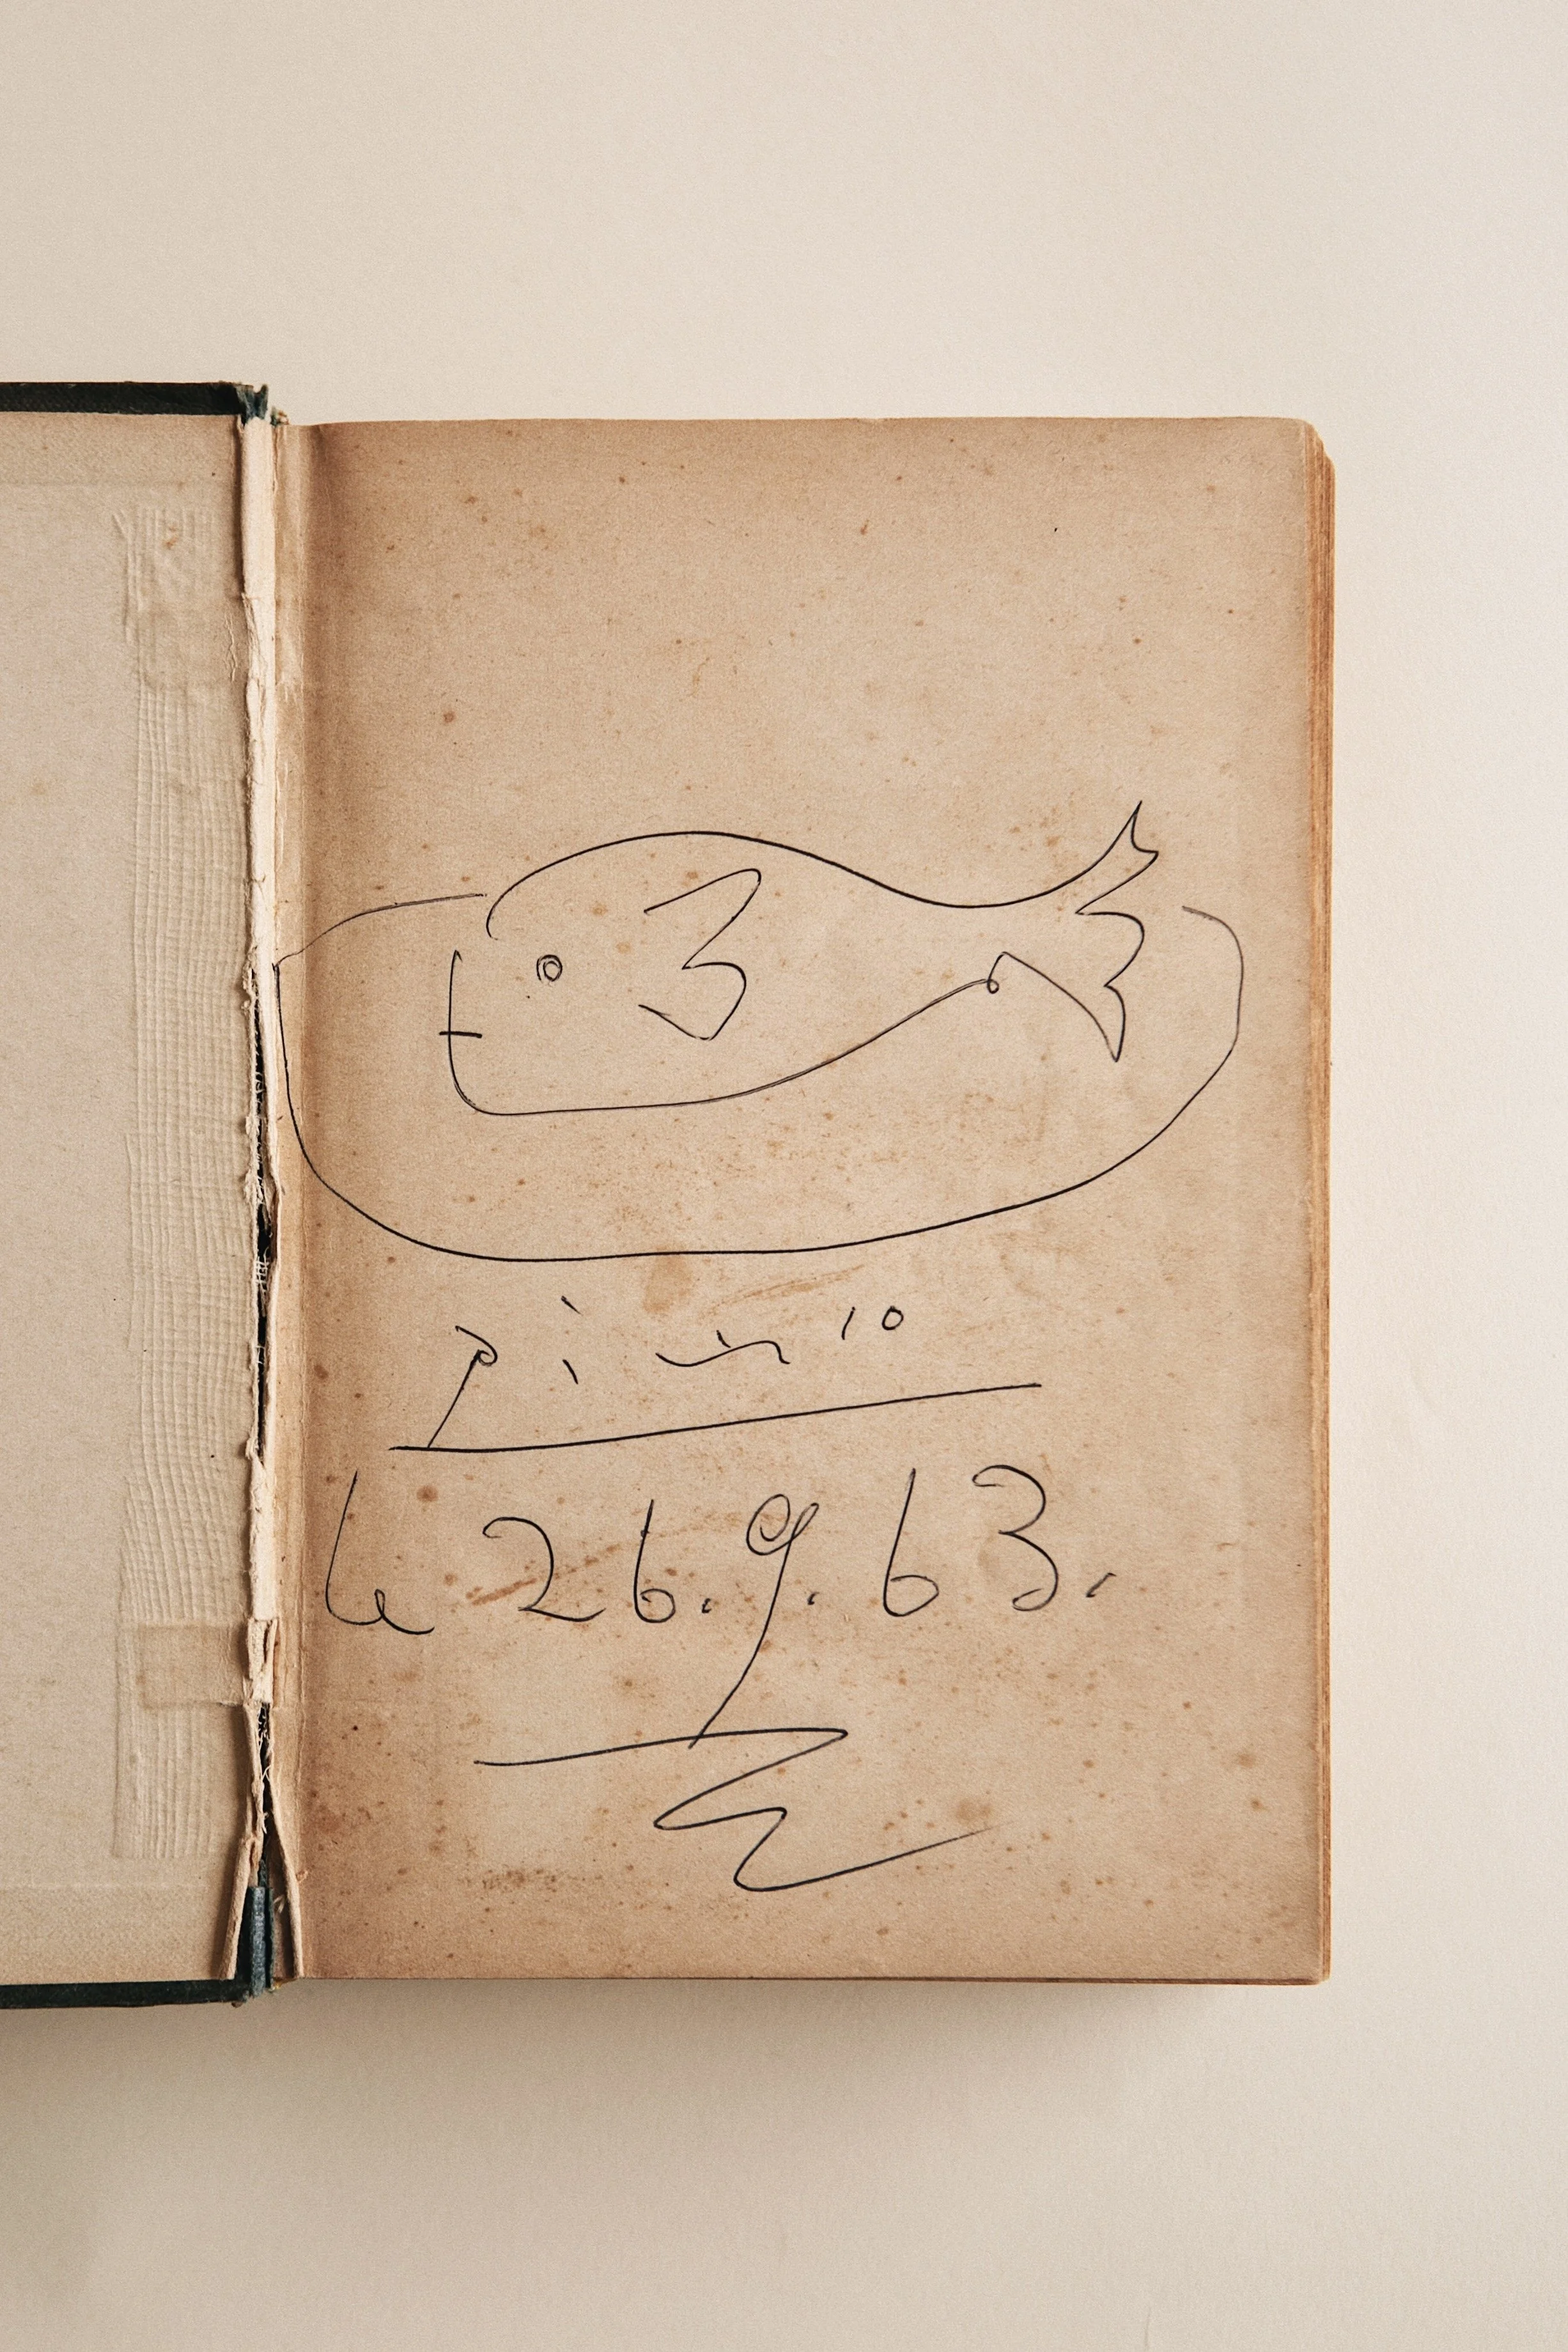 le 26.9.63.